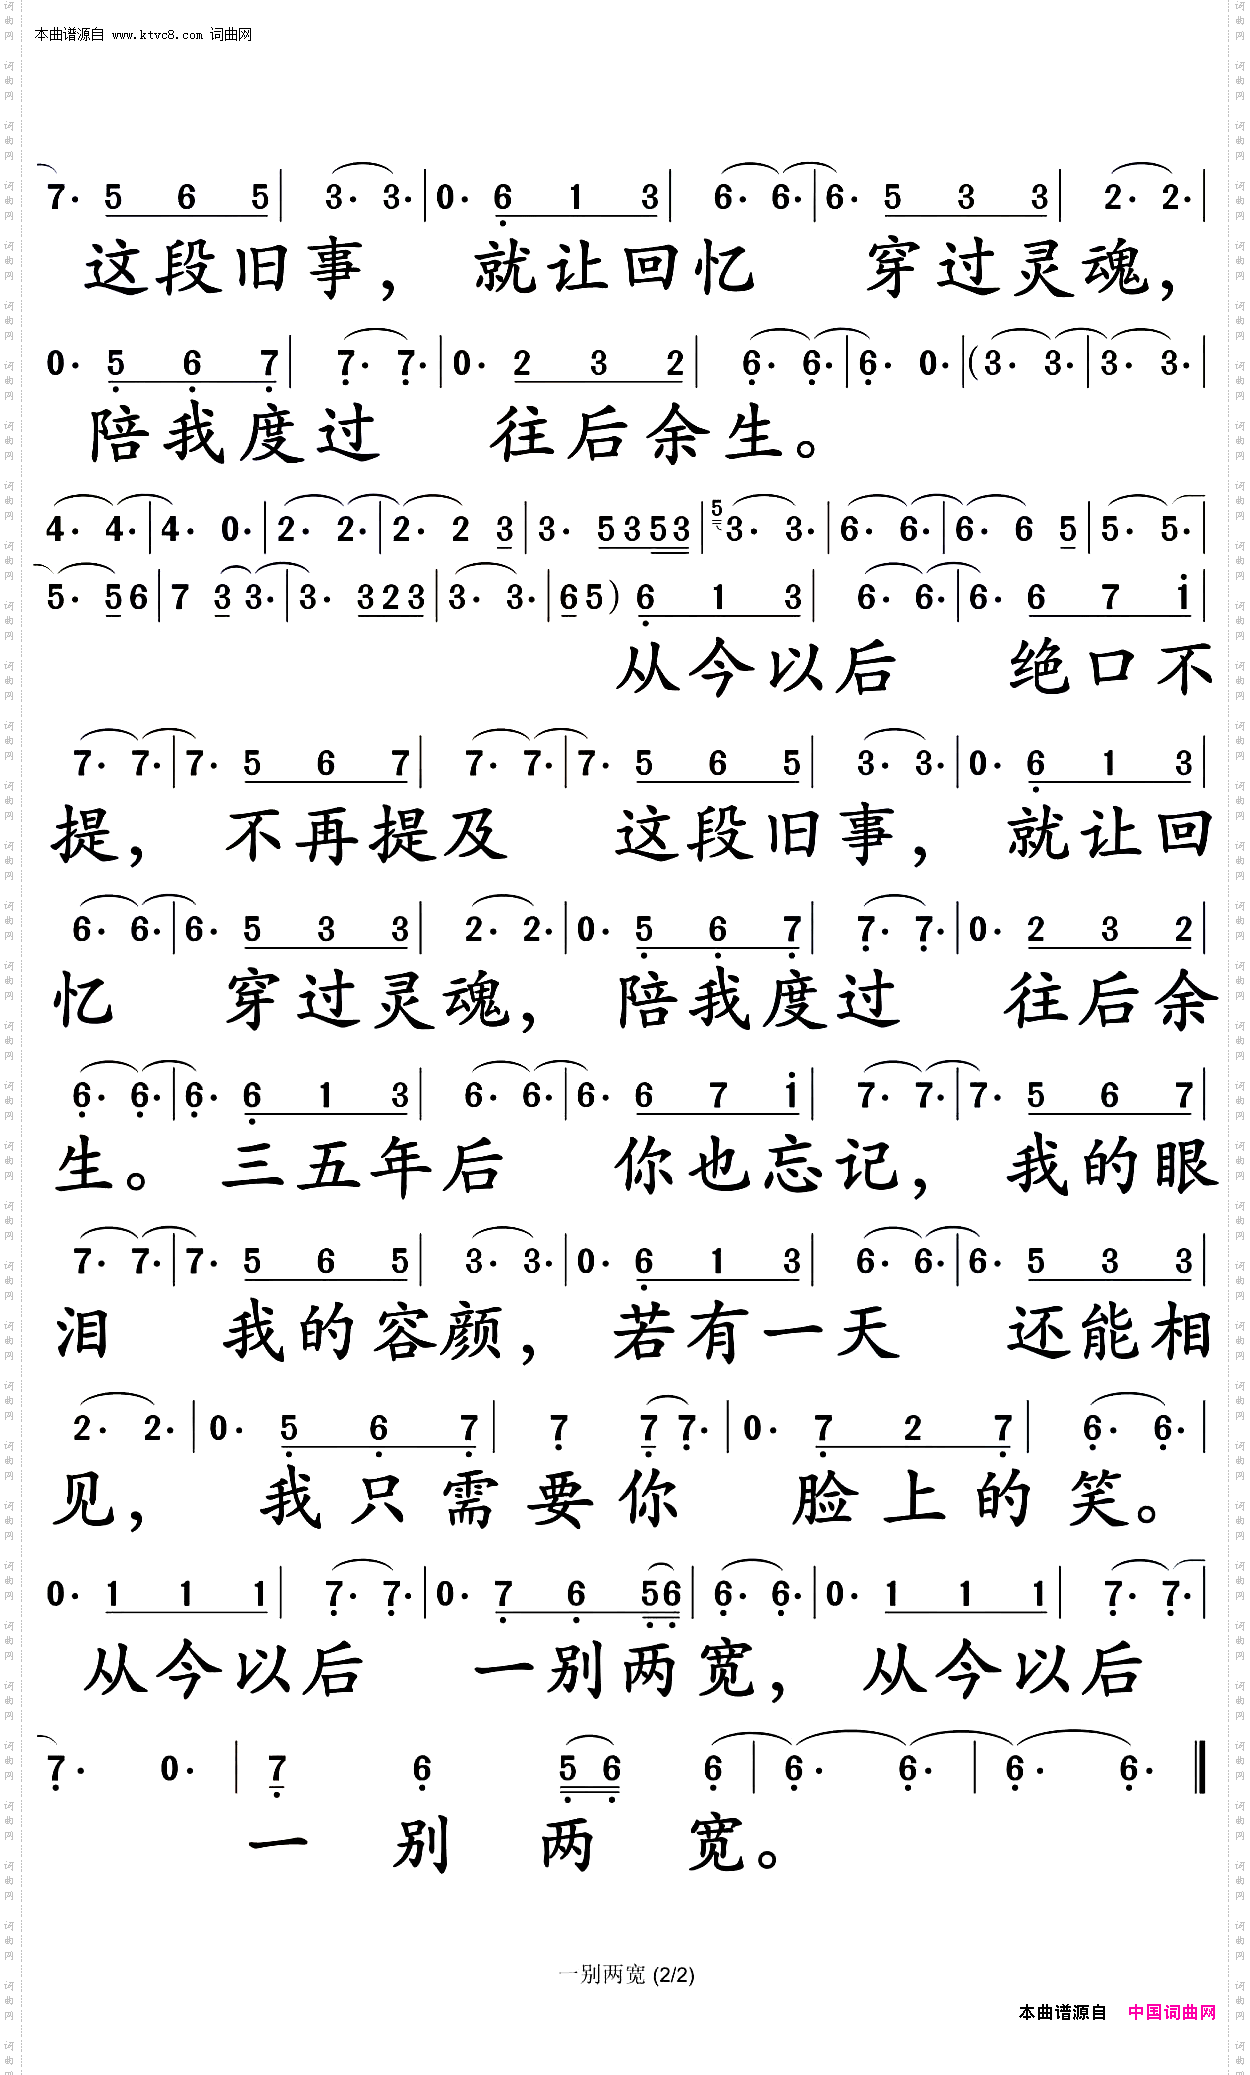 本曲谱源自 www.ktvc8.com 词曲网
7· 5 6 5 | 3· 3· | 0· 6 1 3 | 6· 6· | 6· 5 3 3 | 2· 2· |
这段旧事，就让回忆 穿过灵魂，
0· 5 6 7 | 7· 7· | 0· 2 3 2 | 6· 6· | 6· 0· | (3· 3· | 3· 3· |
陪我度过 往后余生。
4· 4· | 4· 0· | 2· 2· | 2· 2 3 | 3· 5 3 5 3 | 5 3· 3· | 6· 6· | 6· 6 5 | 5· 5· |
5· 5 6 | 7 3 3· | 3· 3 2 3 | 3· 3· | 6 5 ) 6 1 3 | 6· 6· | 6· 6 7 1 |
从今以后 绝口不
7· 7· | 7· 5 6 7 | 7· 7· | 7· 5 6 5 | 3· 3· | 0· 6 1 3 |
提，不再提及 这段旧事，就让回
6· 6· | 6· 5 3 3 | 2· 2· | 0· 5 6 7 | 7· 7· | 0· 2 3 2 |
忆 穿过灵魂，陪我度过 往后余
6· 6· | 6· 6 1 3 | 6· 6· | 6· 6 7 1 | 7· 7· | 7· 5 6 7 |
生。三五年后 你也忘记，我的眼
7· 7· | 7· 5 6 5 | 3· 3· | 0· 6 1 3 | 6· 6· | 6· 5 3 3 |
泪 我的容颜，若有一天 还能相
2· 2· | 0· 5 6 7 | 7 7 7· | 0· 7 2 7 | 6· 6· |
见，我只需要你 脸上的笑。
0· 1 1 1 | 7· 7· | 0· 7 6 5 6 | 6· 6· | 0· 1 1 1 | 7· 7· |
从今以后 一别两宽，从今以后
7· 0· | 7 6 5 6 6 | 6· 6· | 6· 6· ‖
一别两宽。
一别两宽 (2/2)
本曲谱源自 中国词曲网